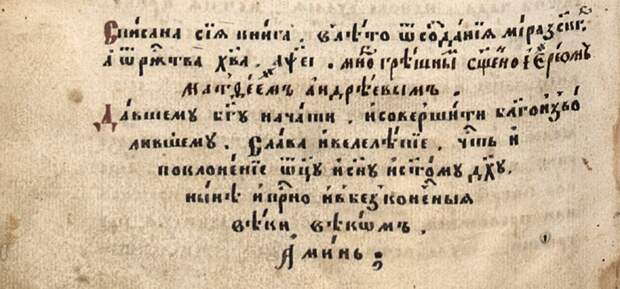 Списана сїѧ книга, в лѣто ѿ созданїѧ мїра зскг
а ѿ ржтва хва, аѱеі. многрѣшны сщеноіереомъ
матѳеемъ андрѣевымъ.
Давшему бгꙋ начати, и совершити благоизво
лившему. Слава и велелѣпїе, чть и
поклоненїе ѿцꙋ и снꙋ и стомꙋ дхꙋ,
ннѣ и прно и в безконечныѧ
вѣки вѣкѡмъ.
Аминь;